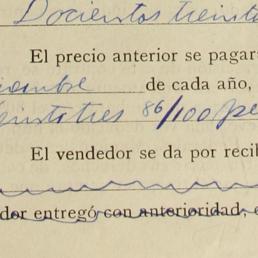 Docientos treinta
El precio anterior se pagar
de cada año,
86/100 pe
El vendedor se da por recib
dor entregó con anterioridad, e